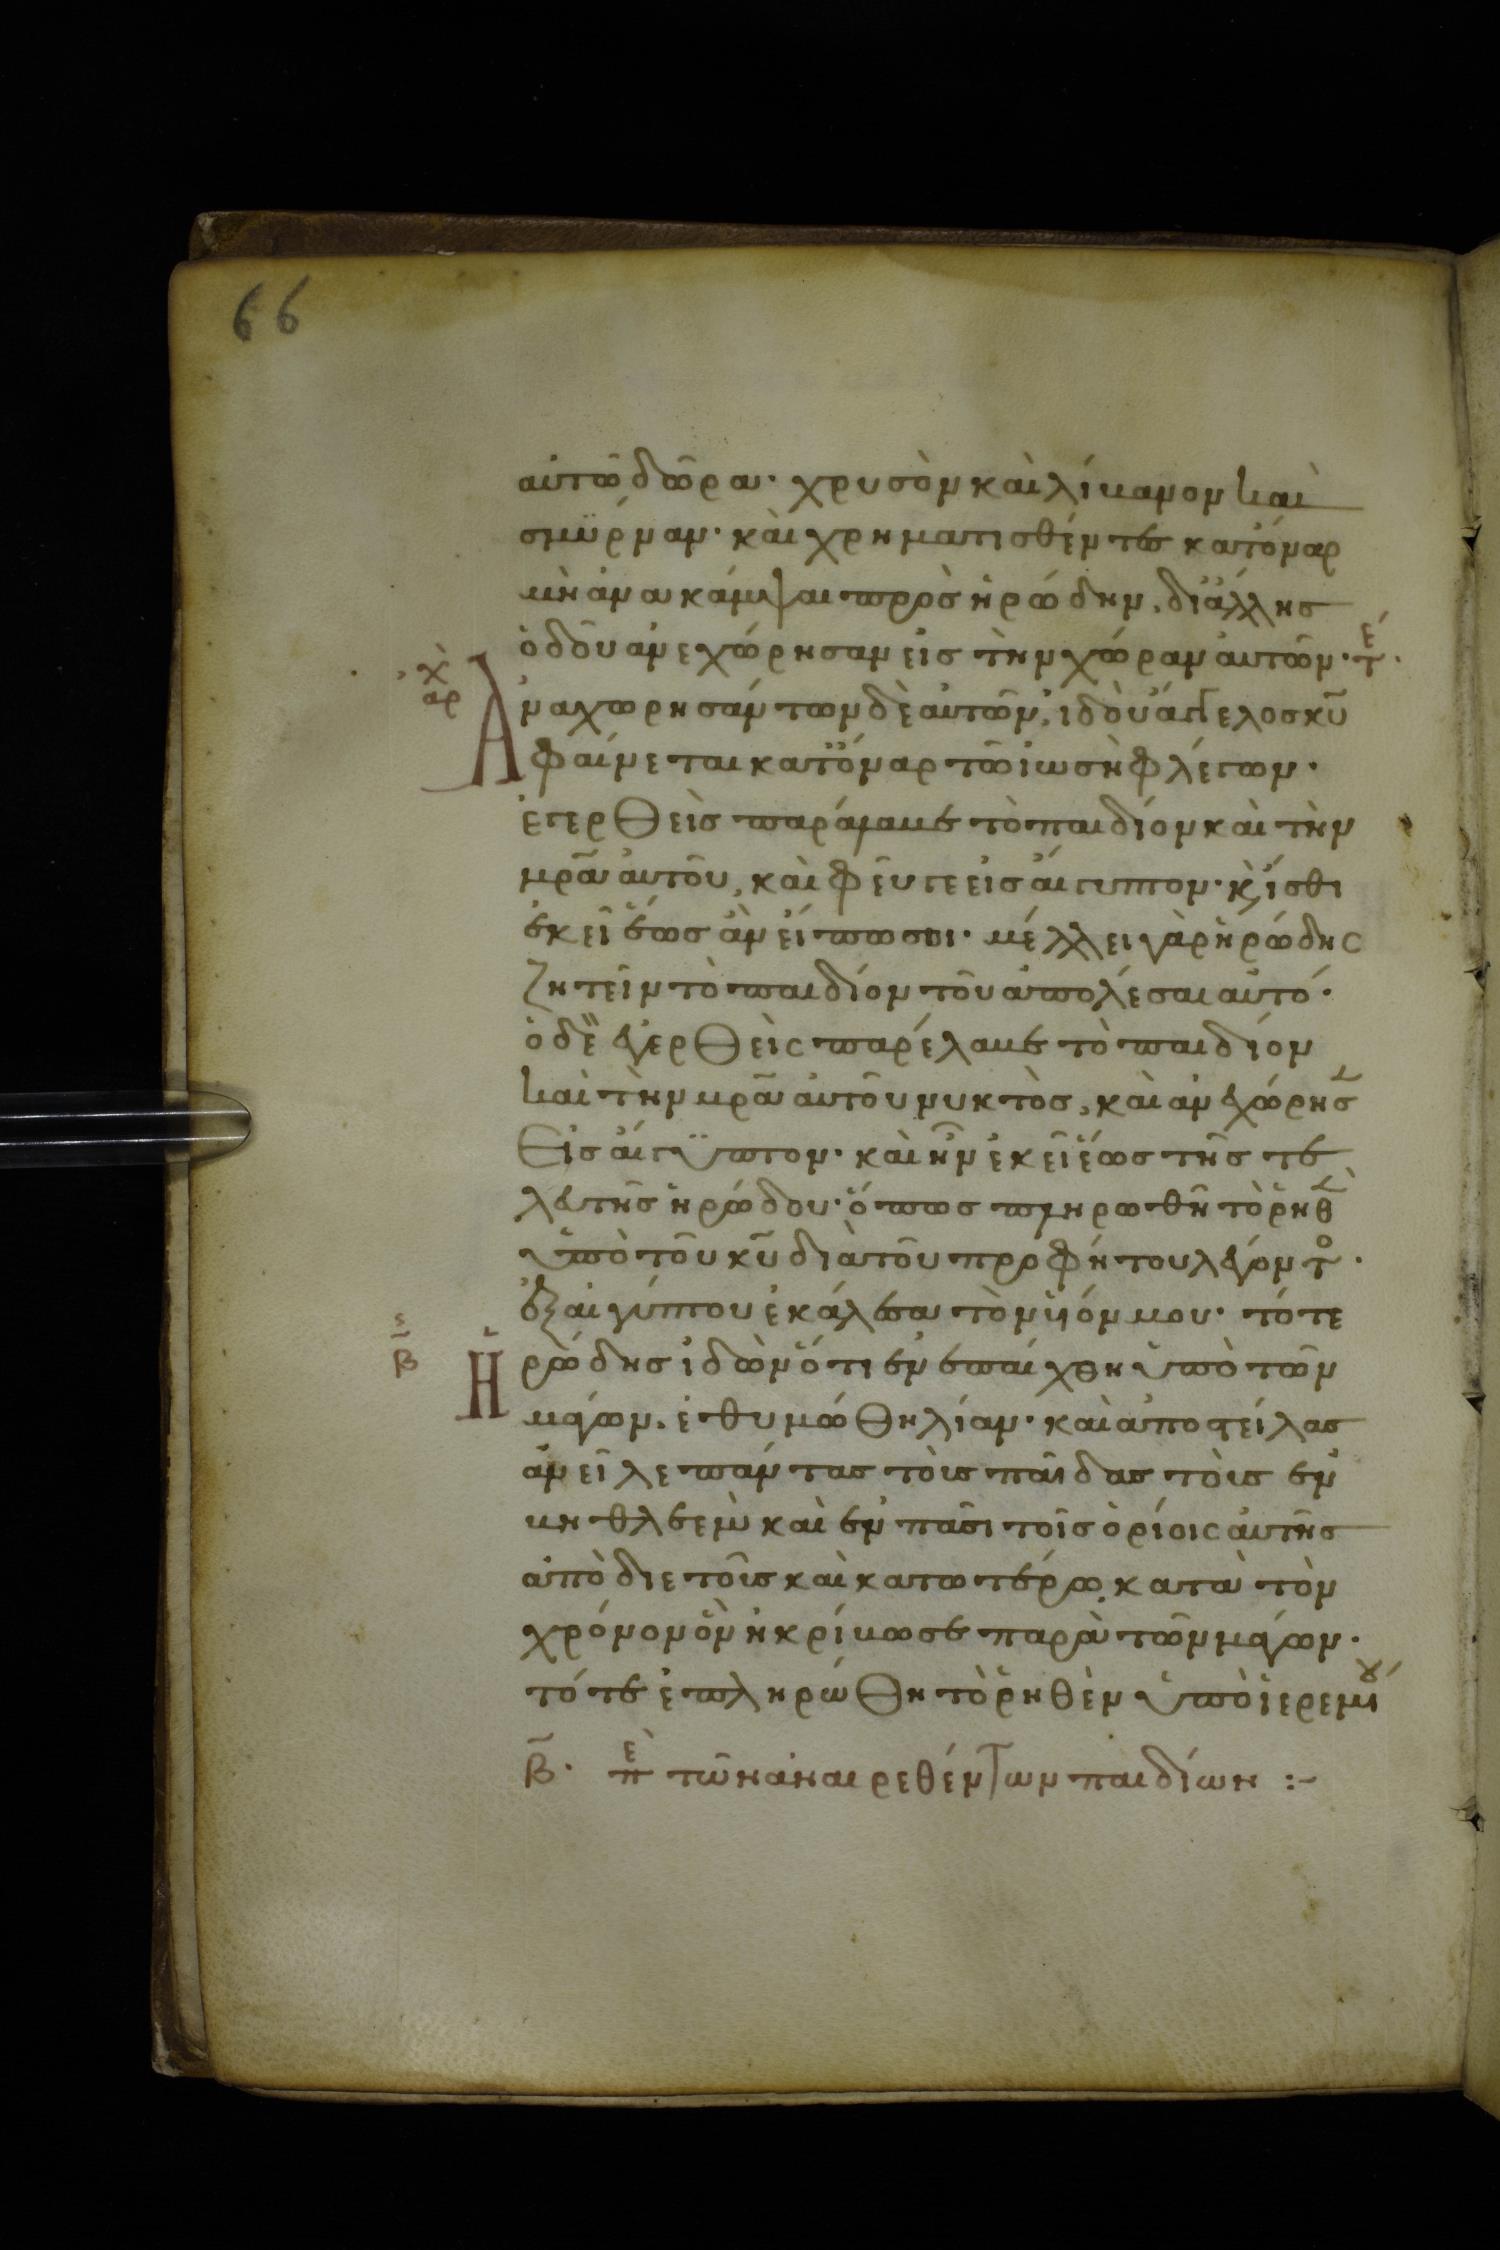 66
αὐτῶ δῶρα· χρυσὸν καὶ λίβανον καὶ
σμύρναν· καὶ χρηματισθέντες κατόναρ
μὴ ἀνακάμψαι πρὸς ἡρώδην, δι ἄλλης
ὁδοῦ ἀνεχώρησαν εἰς τὴν χώραν αὐτῶν· τέ·
χ
αρ
Ἀναχωρησάντων δὲ αὐτῶν, ἰδοὺ ἄγγελος κυ̅
φαίνεται κατόναρ τῶ ἰωσὴφ λέγων·
ἐγερθεὶς παράλαβε τὸ παιδίον καὶ τὴν
μρ̅α αὐτοῦ, καὶ φεῦγε εἰς αἴγυπτον· κ̀ ἴσθι
ἐκεῖ ἕως ἂν εἴπω σοι· μέλλει γὰρ ἡρώδης
ζητεῖν τὸ παιδίον τοῦ ἀπολέσαι αὐτό·
ὁ δὲ ἐγερθεὶς παρέλαβε τὸ παιδίον
καὶ τὴν μρ̅α αὐτοῦ νυκτὸς, καὶ ἀνεχώρησ
εἰς αἴγυπτον· καὶ ἦν ἐκεῖ ἕως τῆς τε
λευτῆς ἡρώδου· ὅπως πληρωθῆ τὸ ῥηθ
ὑπὸ τοῦ κυ̅ διὰ τοῦ προφήτου λέγοντο·
ἐξ αἰγύπτου ἐκάλεσα τὸν υἱόν μου· τότε
ς
β̅
Ἡρώδης ἰδὼν ὅτι ἐνεπαίχθη ὑπὸ τῶν
μάγων, ἐθυμώθη λίαν· καὶ ἀποστείλας
ἀνεῖλε πάντας τοὺς παῖδας τοὺς ἐν
βηθλεὲμ καὶ ἐν πᾶσι τοῖς ὁρίοις αὐτῆς
ἀπὸ διετοῦς καὶ κατωτέρω, κατὰ τὸν
χρόνον ὃν ἠκρίβωσε παρὰ τῶν μάγων·
τότε ἐπληρώθη τὸ ῥηθὲν ὑπὸ ἱερεμίου
β̅· πὲ τῶν ἀναιρεθέντων παιδίων :~